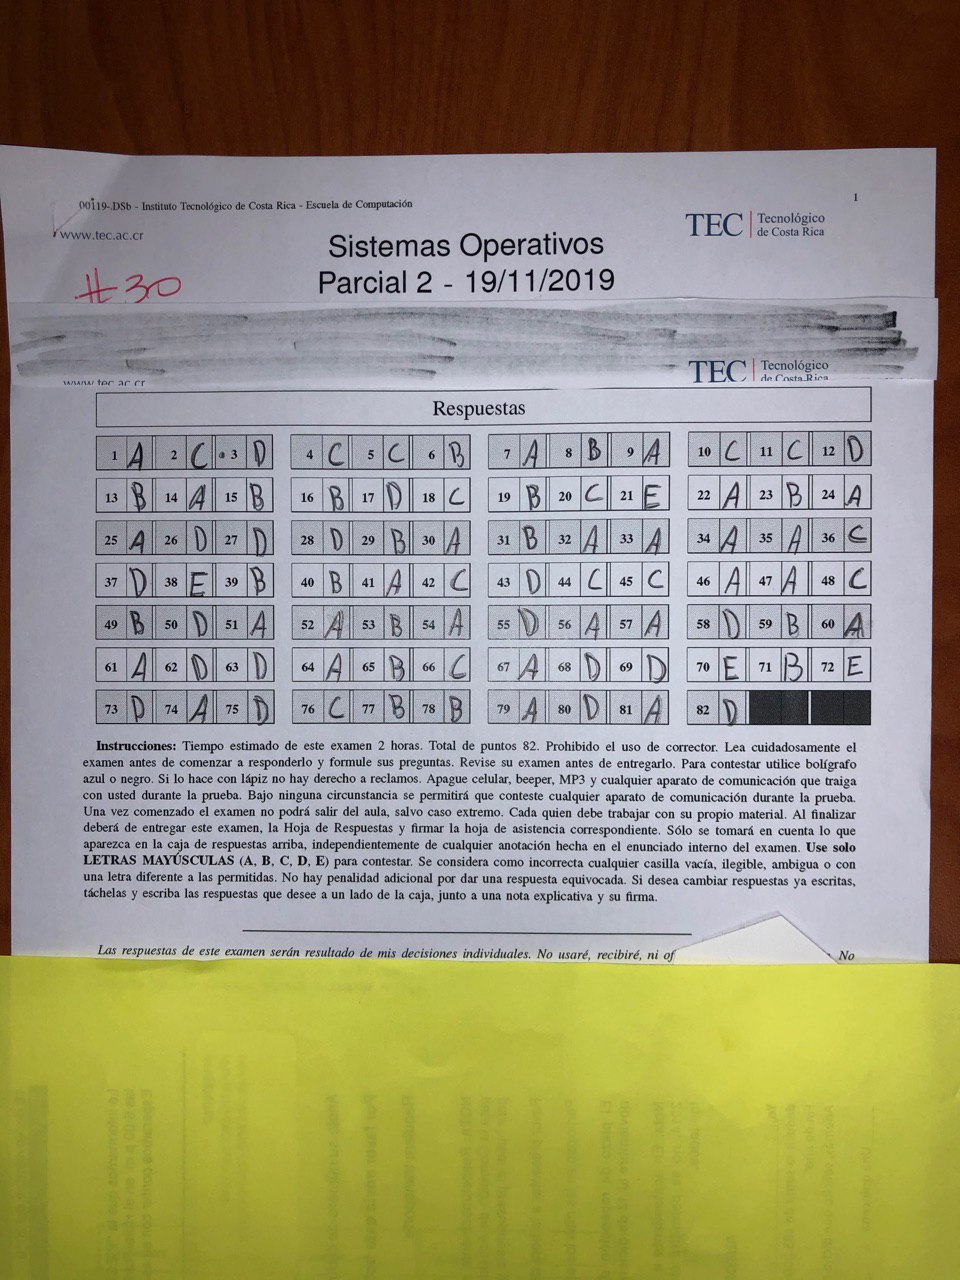 00119-.DSb - Instituto Tecnológico de Costa Rica - Escuela de Computación
1
www.tec.ac.cr
TEC | Tecnológico de Costa Rica
Sistemas Operativos
Parcial 2 - 19/11/2019
#30
TEC | Tecnológico de Costa Rica
www.tec.ac.cr
Respuestas
1 A 2 C 3 D 4 C 5 C 6 B 7 A 8 B 9 A 10 C 11 C 12 D
13 B 14 A 15 B 16 B 17 D 18 C 19 B 20 C 21 E 22 A 23 B 24 A
25 A 26 D 27 D 28 D 29 B 30 A 31 B 32 A 33 A 34 A 35 A 36 C
37 D 38 E 39 B 40 B 41 A 42 C 43 D 44 C 45 C 46 A 47 A 48 C
49 B 50 D 51 A 52 A 53 B 54 A 55 D 56 A 57 A 58 D 59 B 60 A
61 A 62 D 63 D 64 A 65 B 66 C 67 A 68 D 69 D 70 E 71 B 72 E
73 D 74 A 75 D 76 C 77 B 78 B 79 A 80 D 81 A 82 D
Instrucciones: Tiempo estimado de este examen 2 horas. Total de puntos 82. Prohibido el uso de corrector. Lea cuidadosamente el
examen antes de comenzar a responderlo y formule sus preguntas. Revise su examen antes de entregarlo. Para contestar utilice bolígrafo
azul o negro. Si lo hace con lápiz no hay derecho a reclamos. Apague celular, beeper, MP3 y cualquier aparato de comunicación que traiga
con usted durante la prueba. Bajo ninguna circunstancia se permitirá que conteste cualquier aparato de comunicación durante la prueba.
Una vez comenzado el examen no podrá salir del aula, salvo caso extremo. Cada quien debe trabajar con su propio material. Al finalizar
deberá de entregar este examen, la Hoja de Respuestas y firmar la hoja de asistencia correspondiente. Sólo se tomará en cuenta lo que
aparezca en la caja de respuestas arriba, independientemente de cualquier anotación hecha en el enunciado interno del examen. Use solo
LETRAS MAYÚSCULAS (A, B, C, D, E) para contestar. Se considera como incorrecta cualquier casilla vacía, ilegible, ambigua o con
una letra diferente a las permitidas. No hay penalidad adicional por dar una respuesta equivocada. Si desea cambiar respuestas ya escritas,
táchelas y escriba las respuestas que desee a un lado de la caja, junto a una nota explicativa y su firma.
Las respuestas de este examen serán resultado de mis decisiones individuales. No usaré, recibiré, ni of No